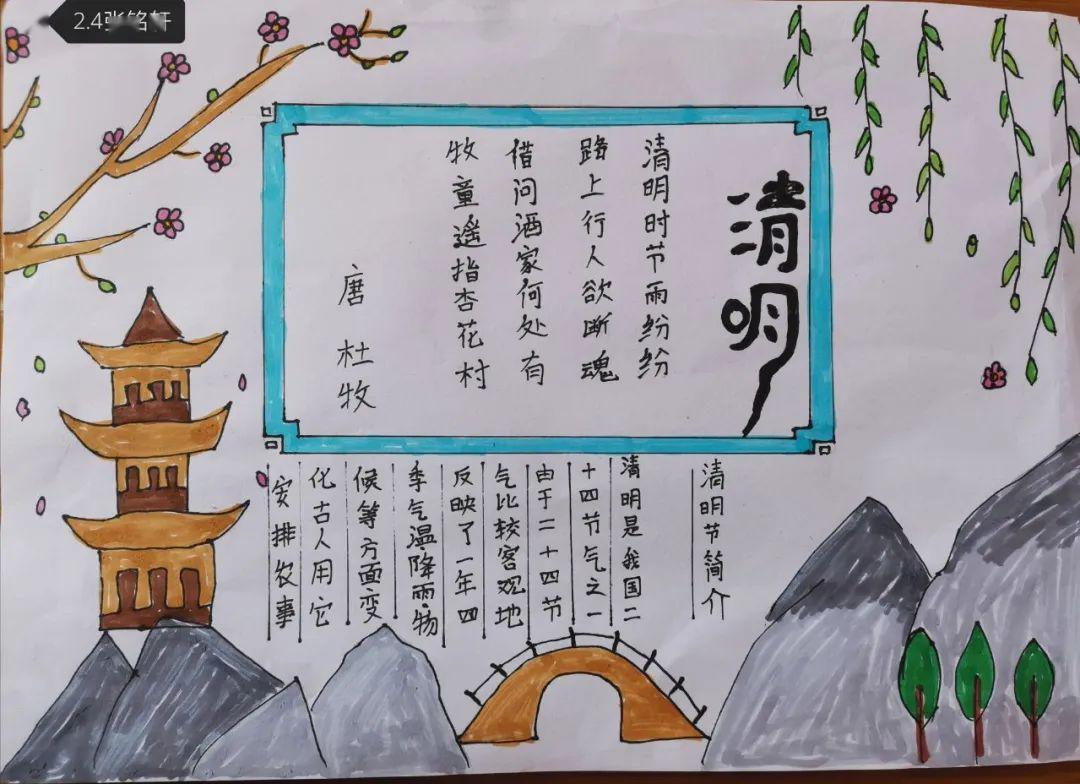 2.4张铭轩
清明
清明时节雨纷纷
路上行人欲断魂
借问酒家何处有
牧童遥指杏花村
唐 杜牧
清明节简介
清明是我国二
十四节气之一
由于二十四节
气比较客观地
反映了一年四
季气温、降雨、物
候等方面变
化古人用它
安排农事